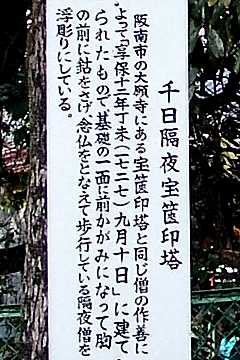 千日隔夜宝筐印塔
阪南市の大願寺にある宝筐印塔と同じ僧の作善に
よって「享保十二年丁未(一七二七)九月十日」に建て
られたもので、基礎の一面に前かがみになって胸
の前に鉦をさげ、念仏をとなえて歩行している隔夜僧を
浮彫りにしている。